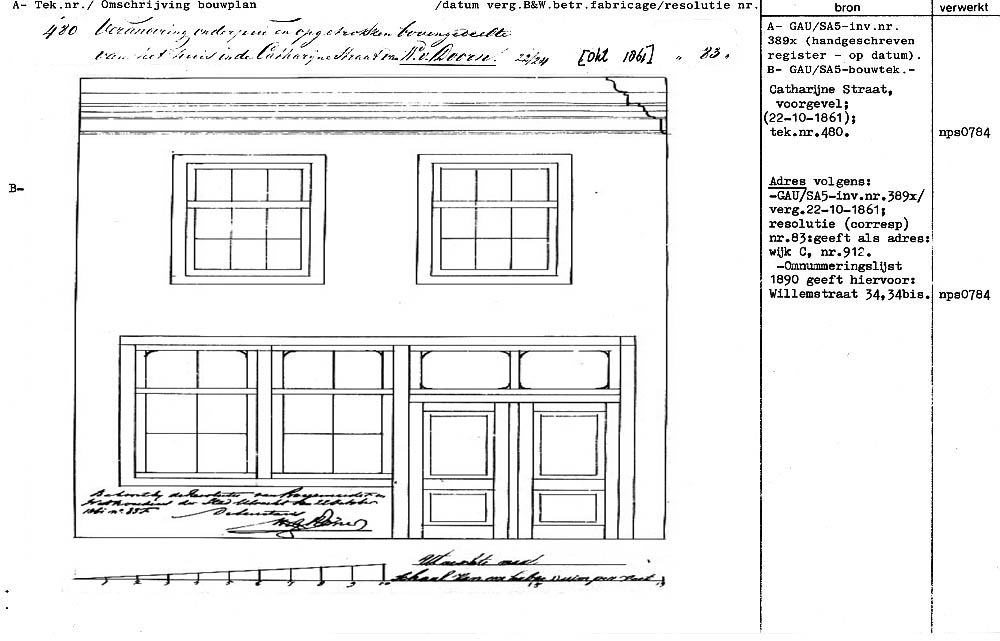 A- Tek.nr./ Omschrijving bouwplan /datum verg.B&W.betr.fabricage/resolutie nr.
bron
verwerkt
480 Verandering onderpui en opgetrokken bovengedeelte
van het huis in de Catharijne Straat van W. v. Doorse. 22/24 [Okt 1861] " 83 "
A- GAU/SA5-inv.nr.
389x (handgeschreven
register - op datum).
B- GAU/SA5-bouwtek.-
Catharijne Straat,
voorgevel;
(22-10-1861);
tek.nr.480. nps0784
B-
Adres volgens:
-GAU/SA5-inv.nr.389x/
verg.22-10-1861;
resolutie (corresp)
nr.83:geeft als adres:
wijk C, nr.912.
-Omnummeringslijst
1890 geeft hiervoor:
Willemstraat 34,34bis. nps0784
Behoort bij de Resolutie van Burgemeester en
Wethouders der Stad Utrecht van 22 October
1861 no. 83
De Secretaris
1 2 3 4 5 6 7 8 9 10 15